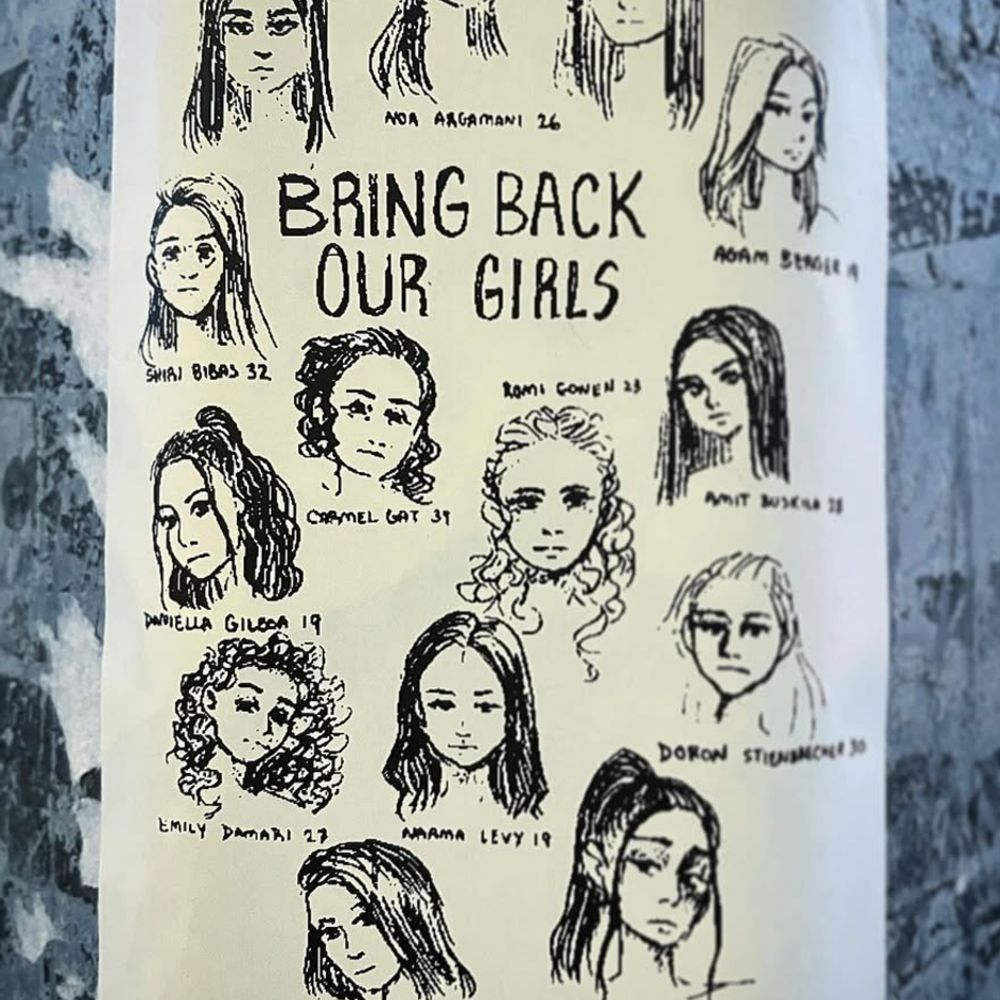 NOA ARGAMANI 26
BRING BACK
OUR GIRLS
AGAM BERGER 19
SHIRI BIBAS 32
ROMI GONEN 23
CARMEL GAT 39
AMIT BUSKILA 28
DANIELLA GILBOA 19
DORON STIENBRECHER 30
EMILY DAMARI 27
NAAMA LEVY 19